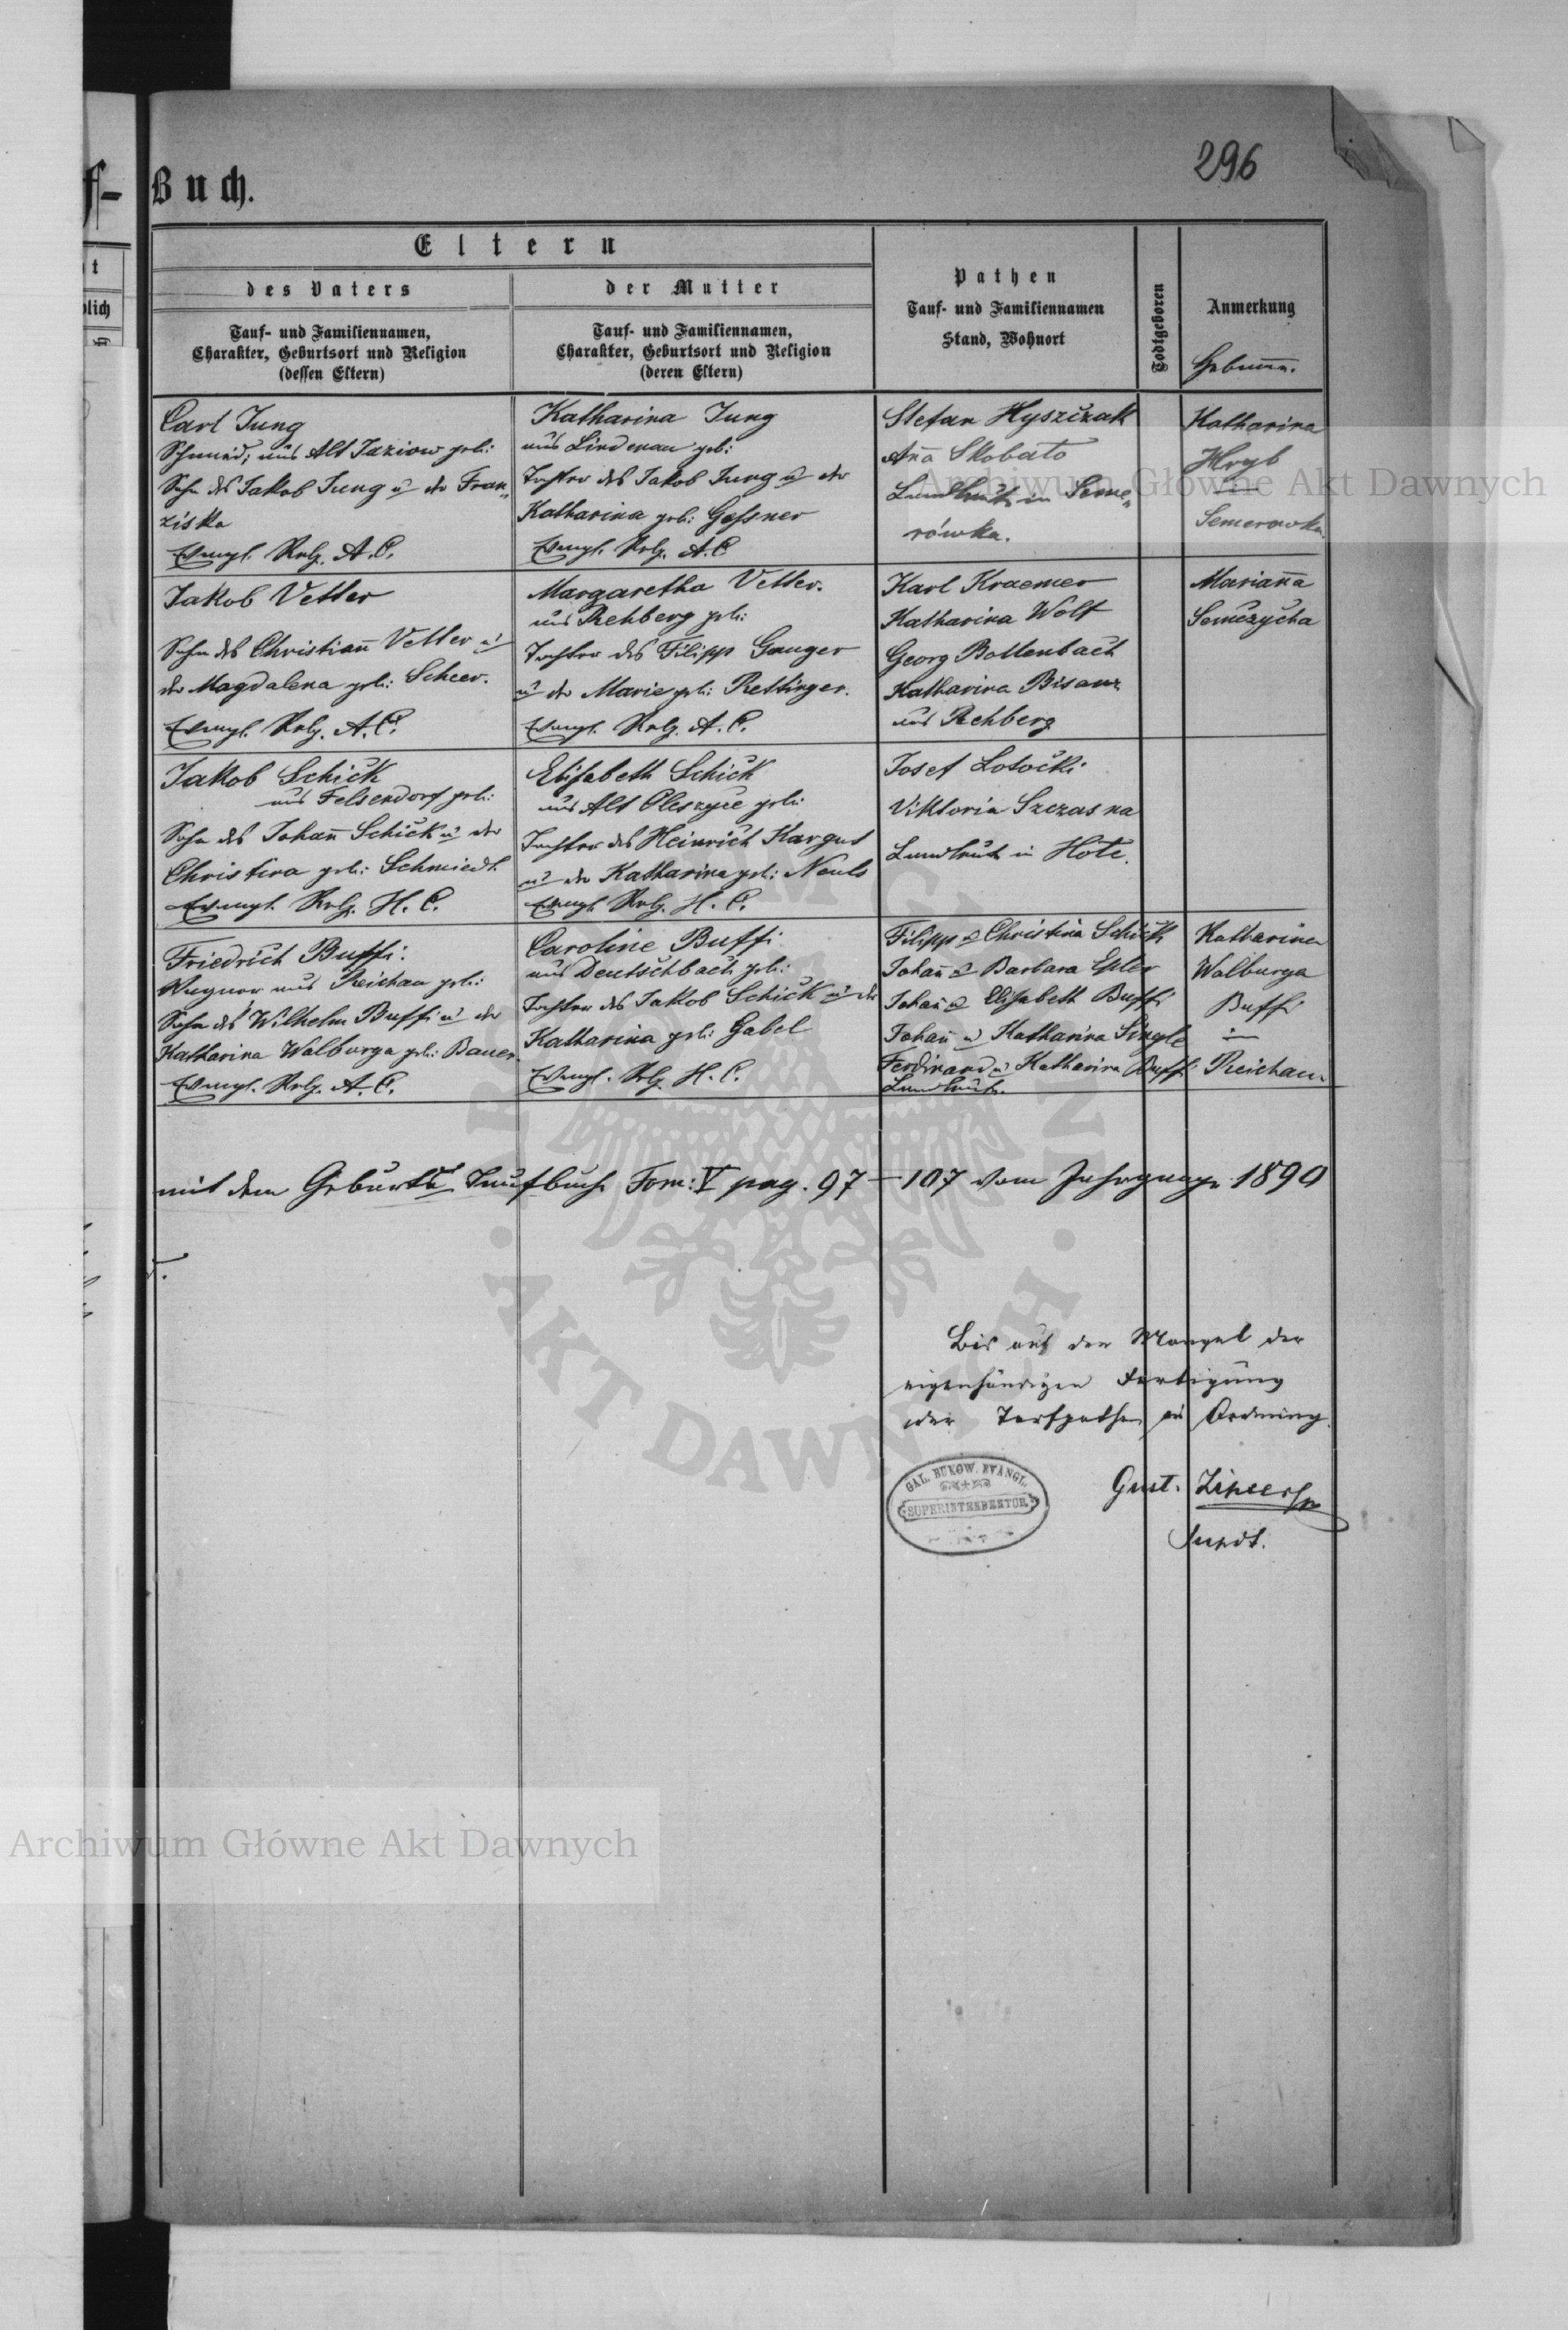 Buch.
296
Eltern
des Vaters
Tauf- und Familiennamen,
Charakter, Geburtsort und Religion
(dessen Eltern)
der Mutter
Tauf- und Familiennamen,
Charakter, Geburtsort und Religion
(deren Eltern)
Pathen
Tauf- und Familiennamen
Stand, Wohnort
Todtgeboren
Anmerkung
Hebamme.
Carl Jung
Schmied, aus Alt Jaziow geb:
Sohn des Jakob Jung u der Fran„
ziska
Evangl. Relg. A.C.
Katharina Jung
aus Lindenau geb:
Tochter des Jakob Jung u der
Katharina geb: Gessner
Evangl. Relg. A.C
Stefan Hyszczak
Anna Skobato
Landleute in Seme„
rówka.
Katharina
Hryb
Semerowka
Jakob Vetter
Sohn des Christian Vetter u
der Magdalena geb: Scheer.
Evangl. Relg. A.C.
Margaretha Vetter.
aus Rehberg geb:
Tochter des Filipp Gauger
u der Marie geb: Rettinger.
Evangl. Relg. A.C.
Karl Kraemer
Katharina Wolf
Georg Bottenbach
Katharina Bisanz
aus Rehberg
Marianna
Semczycha
Jakob Schick
aus Felsendorf geb:
Sohn des Johann Schick u der
Christina geb: Schmiedt
Evangl. Relg. H.C.
Elisabeth Schick
aus Alt Oleszyce geb:
Tochter des Heinrich Kargut
u der Katharina geb: Neuls
Evangl. Relg. H.C.
Josef Lotocki
Viktoria Szczasna
Landleute in Hote.
Friedrich Buffi.
Wagner aus Reichau geb:
Sohn des Wilhelm Buffi u der
Katharina Walburga geb: Bauer.
Evangl. Relg. A.C.
Caroline Buffi
aus Deutschbach geb:
Tochter des Jakob Schick u der
Katharina geb: Gabel
Evangl. Relg. H.C.
Filipp u Christina Schick
Johann u Barbara Epler
Johann u Elisabeth Buffi
Johann u Katharina Single
Ferdinand u Katharina Buffi
Landleute.
Katharina
Walburga
Buffi
in
Reichau
mit dem Geburts u Taufbuche Tom: V pag. 97 – 107 vom Jahrgange 1890
Bis auf den Mangel der
eigenhändigen Fertigung
der Taufpathen in Ordnung.
Gust. Zipser
Supdt.
GAL. BUKOW. EVANGL.
SUPERINTENDENTUR
Archiwum Główne Akt Dawnych
Archiwum Główne Akt Dawnych
AKT DAWNYCH